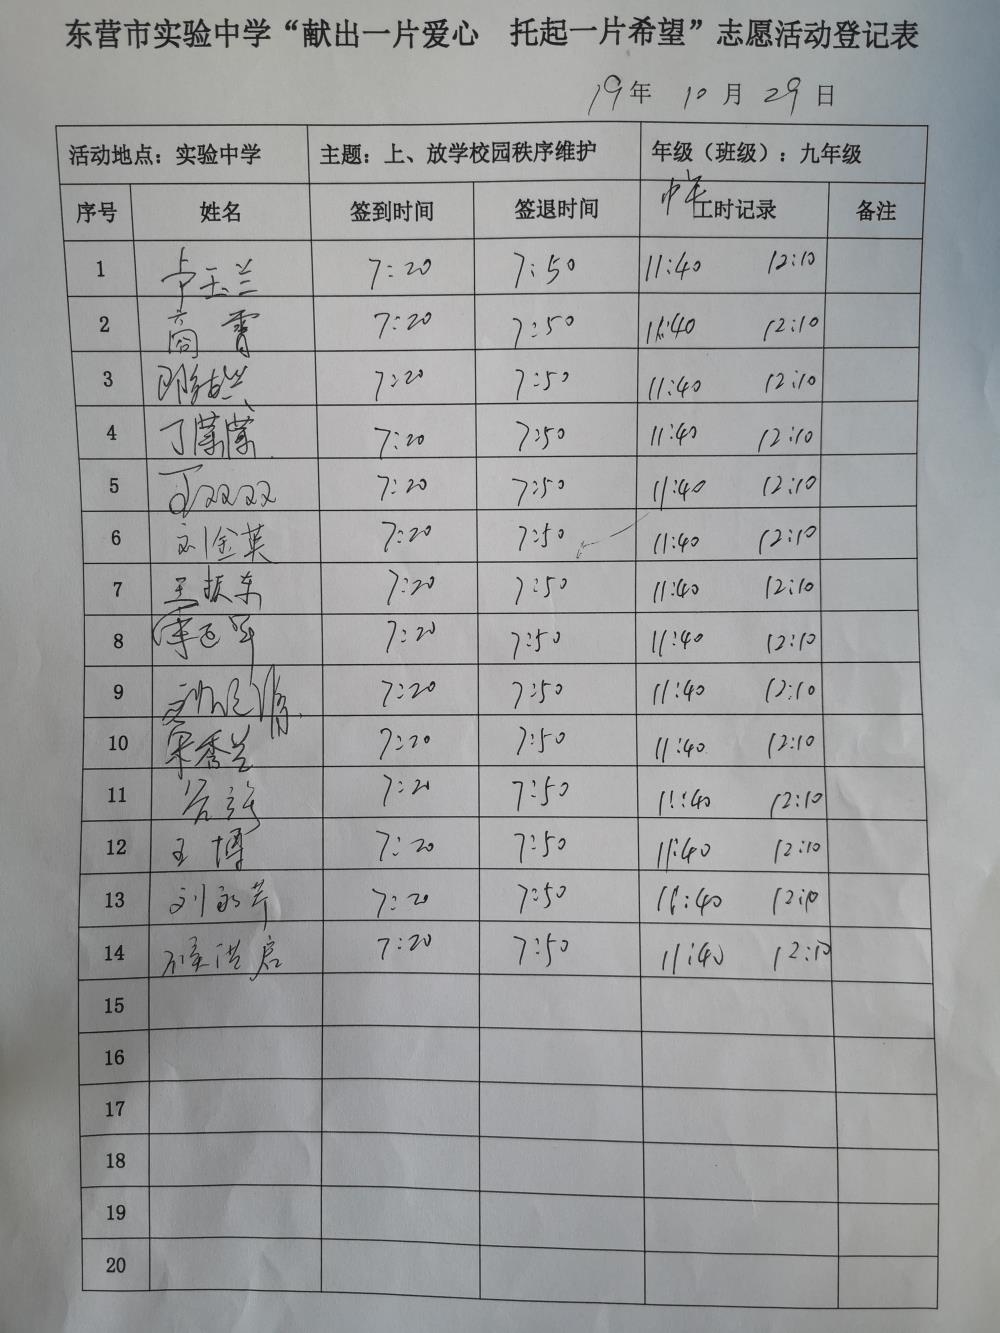 东营市实验中学“献出一片爱心 托起一片希望”志愿活动登记表
19年 10月 29日
活动地点：实验中学 主题：上、放学校园秩序维护 年级（班级）：九年级
中午
序号 姓名 签到时间 签退时间 工时记录 备注
1 卢玉兰 7:20 7:50 11:40 12:10
2 商霄 7:20 7:50 11:40 12:10
3 7:20 7:50 11:40 12:10
4 丁蒙蒙 7:20 7:50 11:40 12:10
5 丁双双 7:20 7:50 11:40 12:10
6 刘金英 7:20 7:50 11:40 12:10
7 王振东 7:20 7:50 11:40 12:10
8 7:20 7:50 11:40 12:10
9 7:20 7:50 11:40 12:10
10 宋秀兰 7:20 7:50 11:40 12:10
11 7:20 7:50 11:40 12:10
12 王博 7:20 7:50 11:40 12:10
13 7:20 7:50 11:40 12:10
14 7:20 7:50 11:40 12:10
15
16
17
18
19
20